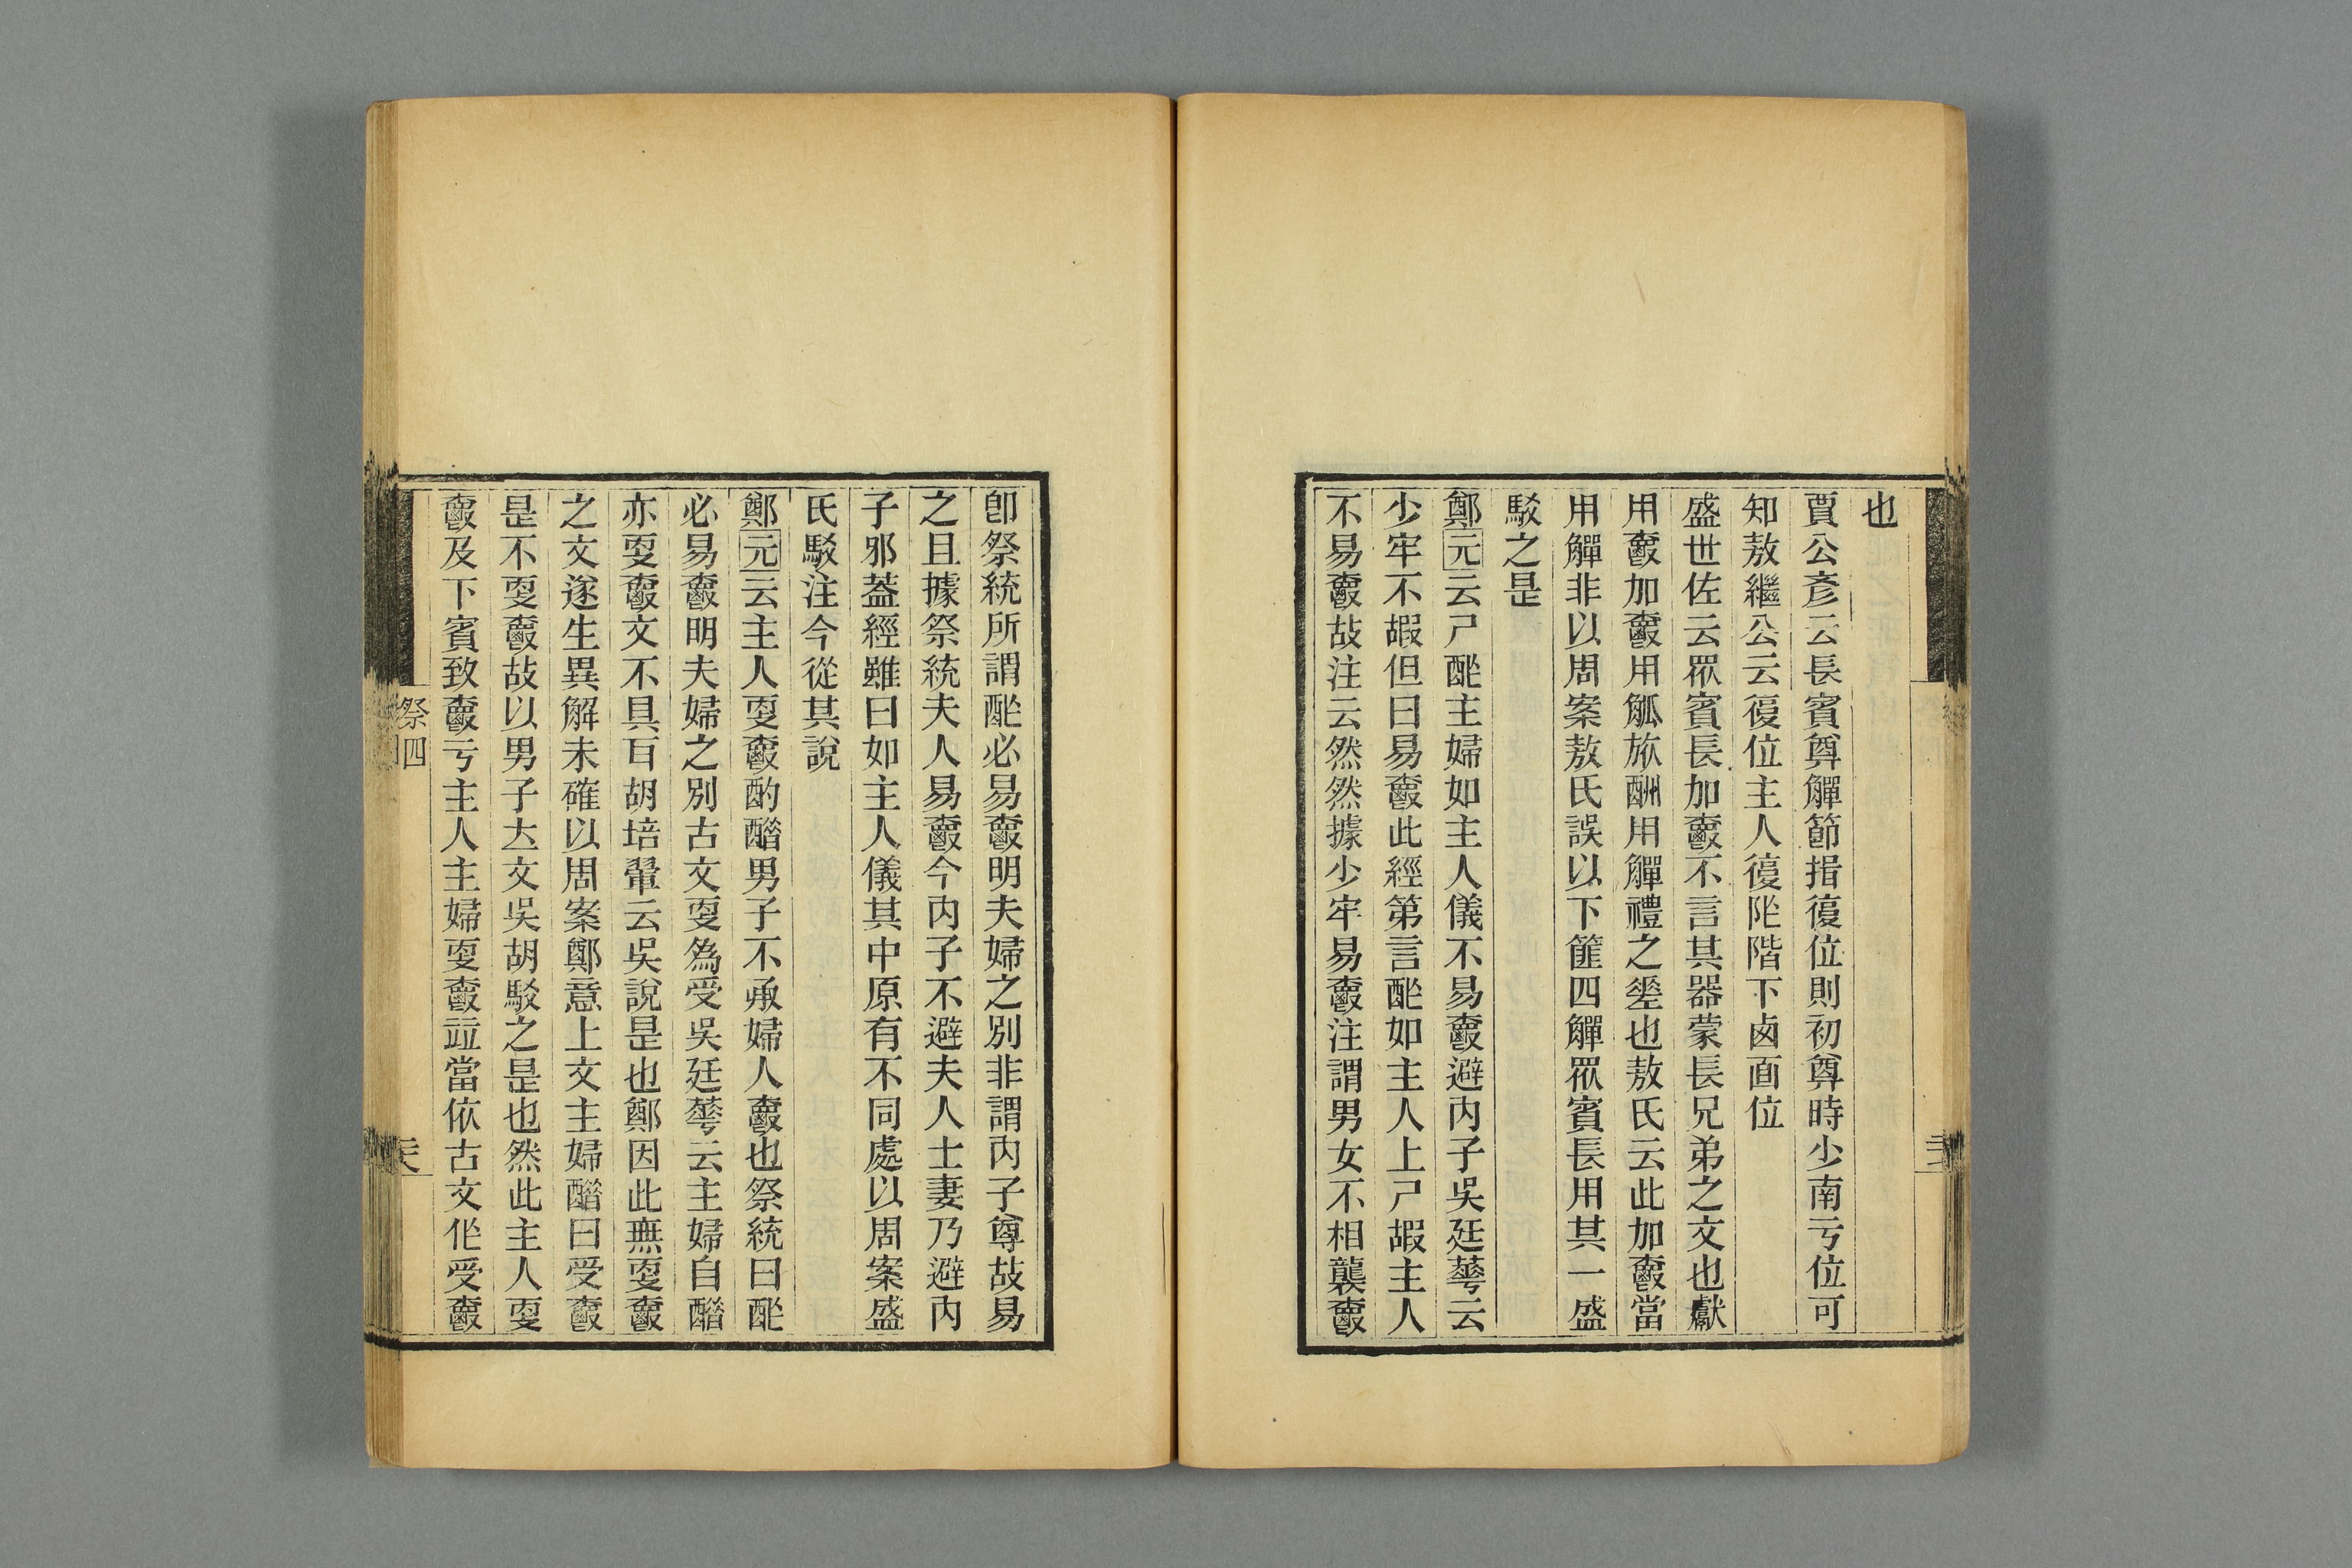 也
賈公彥云長賓奠觶節指復位則初奠時少南亏位可
知敖繼公云復位主人復阼階下鹵面位
盛世佐云眾賓長加爵不言其器蒙長兄弟之文也獻
用爵加爵用觚旅酬用觶禮之差也敖氏云此加爵當
用觶非以周案敖氏誤以下篚四觶眾賓長用其一盛
駁之是
鄭元云尸酢主婦如主人儀不易爵避内子吳廷華云
少牢不嘏但曰易爵此經第言酢如主人上尸嘏主人
不易爵故注云然然據少牢易爵注謂男女不相襲爵
卽祭統所謂酢必易爵明夫婦之別非謂内子尊故易
之且據祭統夫人易爵今内子不避夫人士妻乃避内
子邪蓋經雖曰如主人儀其中原有不同處以周案盛
氏駁注今從其說
鄭元云主人更爵酌醋男子不承婦人爵也祭統曰酢
必易爵明夫婦之別古文更爲受吳廷華云主婦自醋
亦更爵文不具耳胡培翬云吳說是也鄭因此無更爵
之文遂生異解未確以周案鄭意上文主婦醋曰受爵
是不更爵故以男子立文吳胡駁之是也然此主人更
爵及下賓致爵亏主人主婦更爵竝當依古文作受爵
祭四